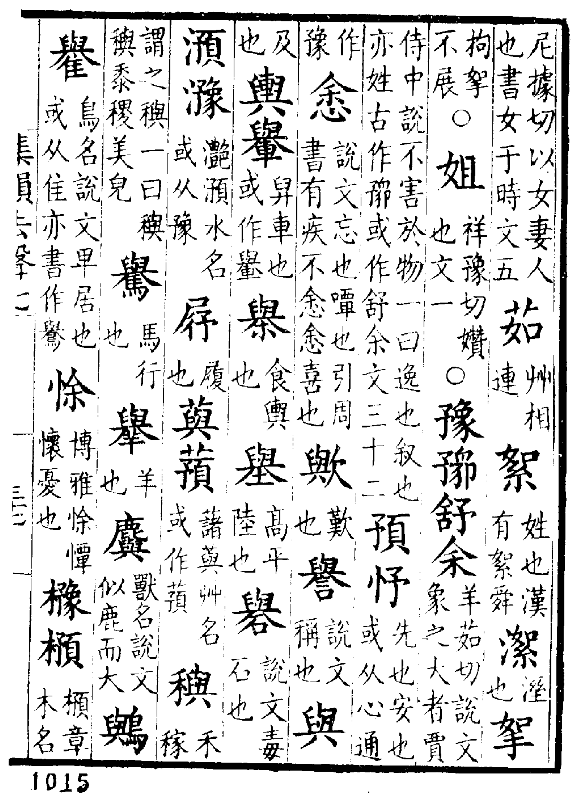 尼據切以女妻人也書女于時文五茹艸相連絮姓也漢有絮舜㵖溼也挐
拘挐不展○姐祥豫切嬻也文一○豫𧰽舒余羊茹切說文象之大者賈
侍中說不害於物一曰逸也叙也亦姓古作𧰽或作舒余文三十二預忬先也安也或从心通
作豫悆說文忘也嘾也引周書有疾不悆悆喜也歟歎也譽說文稱也與
及也輿轝舁車也或作轝食輿也高平陸也礜說文毒石也
澦灔澦水名或从豫履也藇蕷藷藇艸名或作蕷穥禾稼
謂之穥一曰穥穥黍稷美皃馬行也羊也獸名說文似鹿而大鸒
鳥名說文卑居也或从隹亦書作鸒悇博雅悇憛懷憂也櫲章木名
集韻去聲七
1015